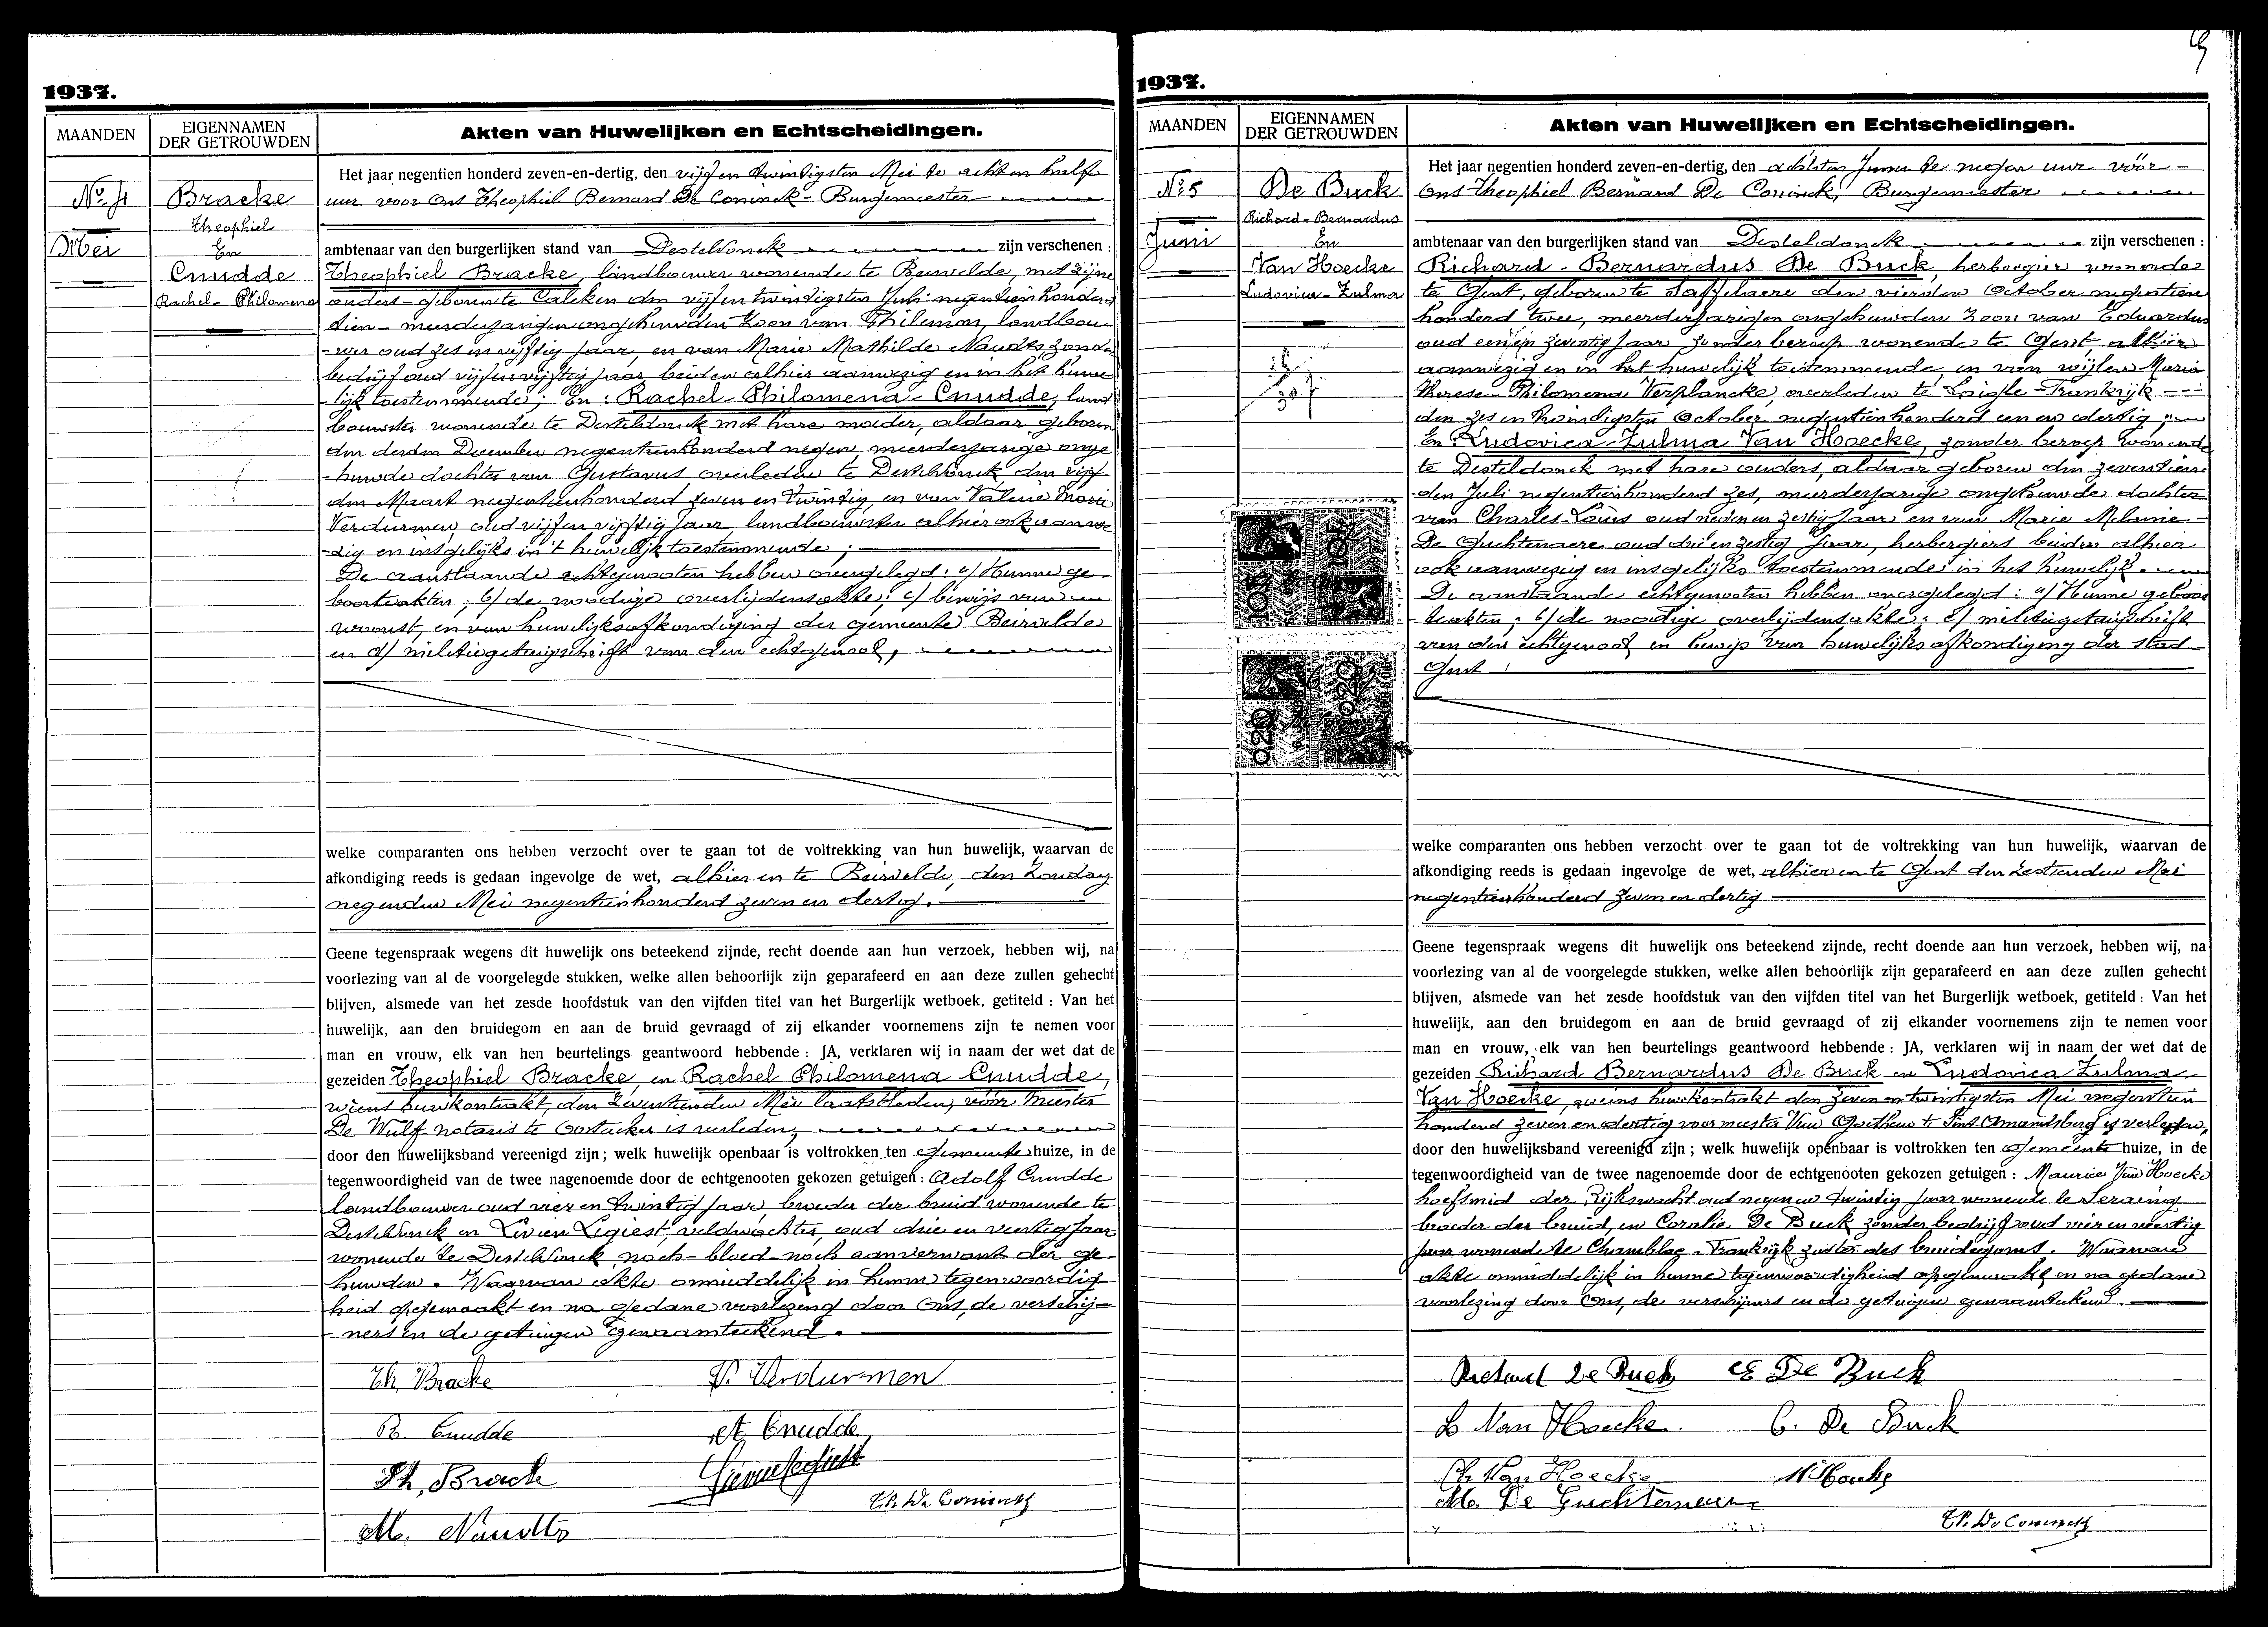 1937.
MAANDEN
EIGENNAMEN
DER GETROUWDEN
Akten van Huwelijken en Echtscheidingen.
No 4
Mei
Bracke
Theophiel
En
Cnudde
Rachel-Philomena
Het jaar negentien honderd zeven-en-dertig, den vijf en twintigsten Mei te acht en half
uur voor Ons Theophiel Bernard De Coninck - Burgemeester
ambtenaar van den burgerlijken stand van Desteldonck zijn verschenen :
Theophiel Bracke, landbouwer wonende te Beirvelde, met zijne
ouders - geboren te Calcken den vijf en twintigsten Juli negentien honderd
tien - meerderjarigen ongehuwden zoon van Philemon, landbou-
-wer oud zes en vijftig jaar, en van Marie Mathilde Naudts zonder
bedrijf oud vijf en vijftig jaar beiden alhier aanwezig en in het huwe
-lijk toestemmende; En : Rachel Philomena - Cnudde, land
bouwster wonende te Desteldonck met hare moeder, aldaar geboren
den derden December negentienhonderd negen, meerderjarige onge
-huwde dochter van Gustavus, overleden te Desteldonck den vijf-
den Maart negentienhonderd zeven en twintig, en van Valerie Marie
Verdurmen, oud vijf en vijftig jaar landbouwster alhier ook aanwe
-zig en insgelijks in 't huwelijk toestemmende ;
De aanstaande echtgenooten hebben overgelegd : a/ Hunne ge-
boorteakten ; b/ de noodige overlijdensakte ; c/ bewijs van
woonst, en van huwelijksafkondiging der gemeente Beirvelde
en d/ militiegetuigschrift van den echtgenoot,
welke comparanten ons hebben verzocht over te gaan tot de voltrekking van hun huwelijk, waarvan de
afkondiging reeds is gedaan ingevolge de wet, alhier en te Beirvelde, den Zondag
negenden Mei negentienhonderd zeven en dertig.
Geene tegenspraak wegens dit huwelijk ons beteekend zijnde, recht doende aan hun verzoek, hebben wij, na
voorlezing van al de voorgelegde stukken, welke allen behoorlijk zijn geparafeerd en aan deze zullen gehecht
blijven, alsmede van het zesde hoofdstuk van den vijfden titel van het Burgerlijk wetboek, getiteld : Van het
huwelijk, aan den bruidegom en aan de bruid gevraagd of zij elkander voornemens zijn te nemen voor
man en vrouw, elk van hen beurtelings geantwoord hebbende : JA, verklaren wij in naam der wet dat de
gezeiden Theophiel Bracke, en Rachel Philomena Cnudde,
wiens huwkontrakt, den zeventienden Mei laatstleden, vóór Meester
De Wulf notaris te Oostacker is verleden,
door den huwelijksband vereenigd zijn ; welk huwelijk openbaar is voltrokken ten Gemeente huize, in de
tegenwoordigheid van de twee nagenoemde door de echtgenooten gekozen getuigen : Adolf Cnudde
landbouwer oud vier en twintig jaar, broeder der bruid wonende te
Desteldonck en Livien Legiest, veldwachter, oud drie en veertig jaar
wonende te Desteldonck, noch - bloed - noch aanverwant der ge-
huwden. Waarvan akte onmiddelijk in hunne tegenwoordig
heid opgemaakt en na gedane voorlezing door Ons, de verschij-
-ners en de getuigen genaamteekend.
Th. Bracke
V. Verdurmen
R. Cnudde
A. Cnudde
Ph. Bracke
Th. De Coninck
M. Naudts
1937.
MAANDEN
EIGENNAMEN
DER GETROUWDEN
Akten van Huwelijken en Echtscheidingen.
No 5
Juni
De Buck
Richard-Bernardus
En
Van Hoecke
Ludovica-Zulma
10F
10F
0.20
0.20
Het jaar negentien honderd zeven-en-dertig, den achtsten Juni te negen uur vóór -
Ons Theophiel Bernard De Coninck, Burgemeester
ambtenaar van den burgerlijken stand van Desteldonck zijn verschenen :
Richard - Bernardus De Buck, herbergier wonende
te Gent, geboren te Saffelaere den vierden October negentien
honderd twee, meerderjarigen ongehuwden zoon van Eduardus
oud een en zeventig jaar zonder beroep wonende te Gent alhier
aanwezig en in het huwelijk toestemmende, en van wijlen Maria
Therese - Philomena Verplancke, overleden te Laigle - Frankrijk
den zes en twindigsten October negentienhonderd een en dertig ;
En : Ludovica-Zulma Van Hoecke, zonder beroep wonende
te Desteldonck met hare ouders, aldaar geboren den zeventien
den Juli negentienhonderd zes, meerderjarige ongehuwde dochter
van Charles-Louis oud negen en zestig jaar en van Marie Melanie -
De Guchtenaere oud drie en zestig jaar, herbergiers beiden alhier
ook aanwezig en insgelijks toestemmende in het huwelijk.
De aanstaande echtgenooten hebben overgelegd : a/ Hunne geboor
-teakten ; b/ de noodige overlijdensakte ; c/ militiegetuigschrift
van den echtgenoot en bewijs van huwelijksafkondiging der stad
Gent
welke comparanten ons hebben verzocht over te gaan tot de voltrekking van hun huwelijk, waarvan de
afkondiging reeds is gedaan ingevolge de wet, alhier en te Gent den zestienden Mei
negentienhonderd zeven en dertig
Geene tegenspraak wegens dit huwelijk ons beteekend zijnde, recht doende aan hun verzoek, hebben wij, na
voorlezing van al de voorgelegde stukken, welke allen behoorlijk zijn geparafeerd en aan deze zullen gehecht
blijven, alsmede van het zesde hoofdstuk van den vijfden titel van het Burgerlijk wetboek, getiteld : Van het
huwelijk, aan den bruidegom en aan de bruid gevraagd of zij elkander voornemens zijn te nemen voor
man en vrouw, elk van hen beurtelings geantwoord hebbende : JA, verklaren wij in naam der wet dat de
gezeiden Richard Bernardus De Buck en Ludovica Zulma
Van Hoecke, wiens huwkontrakt den zeven en twintigsten Mei negentien
honderd zeven en dertig voor meester Van te Sint Amandsberg is verleden,
door den huwelijksband vereenigd zijn ; welk huwelijk openbaar is voltrokken ten Gemeente huize, in de
tegenwoordigheid van de twee nagenoemde door de echtgenooten gekozen getuigen : Maurice Van Hoecke
hoefsmid der Rijkswacht oud negen en twintig jaar wonende te Seraing
broeder der bruid, en Coralie De Buck zonder bedrijf oud vier en veertig
jaar wonende te Chamblac - Frankrijk zuster des bruidegoms. Waarvan
akte onmiddelijk in hunne tegenwoordigheid opgemaakt en na gedane
voorlezing door Ons, de verschijners en de getuigen genaamteekend.
Richard De Buck
E De Buck
L Van Hoecke.
C. De Buck
Ch Van Hoecke
M De Guchtenaere
Th. De Coninck